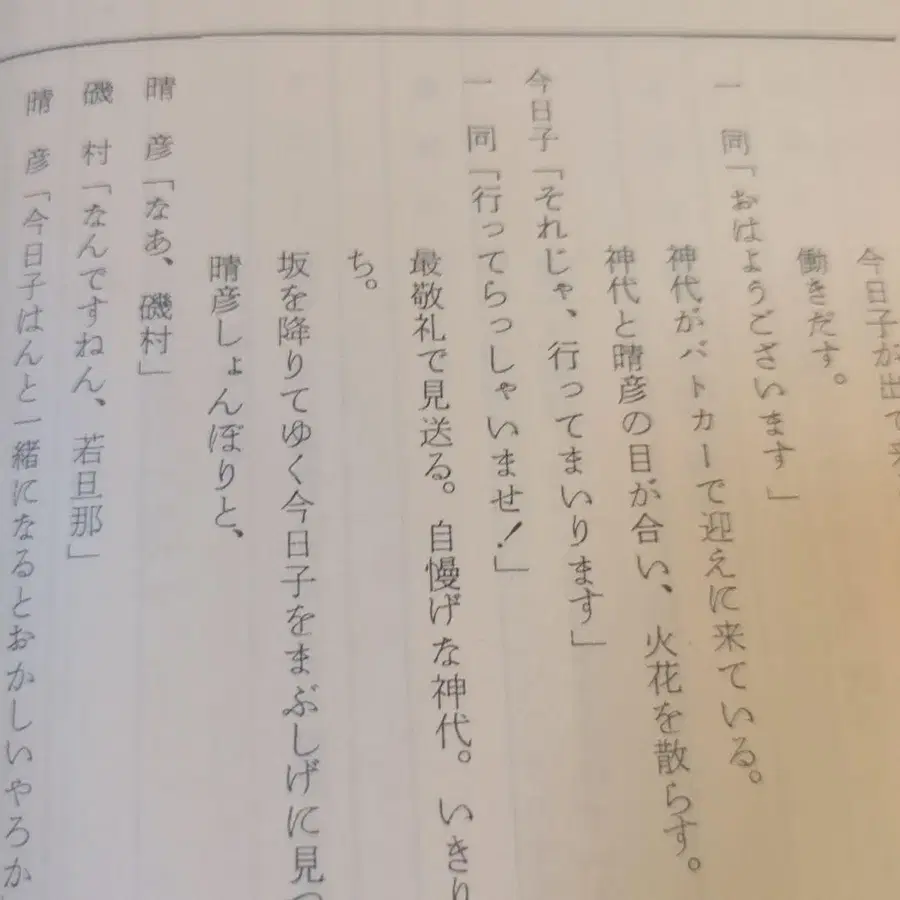 今日子が出て来
働きだす。
一同「おはようございます」
神代がパトカーで迎えに来ている。
神代と晴彦の目が合い、火花を散らす。
今日子「それじゃ、行ってまいります」
一同「行ってらっしゃいませ！」
最敬礼で見送る。自慢げな神代。いきり
ち。
坂を降りてゆく今日子をまぶしげに見つ
晴彦しょんぼりと、
晴彦「なあ、磯村」
磯村「なんですねん、若旦那」
晴彦「今日子はんと一緒になるとおかしいやろか